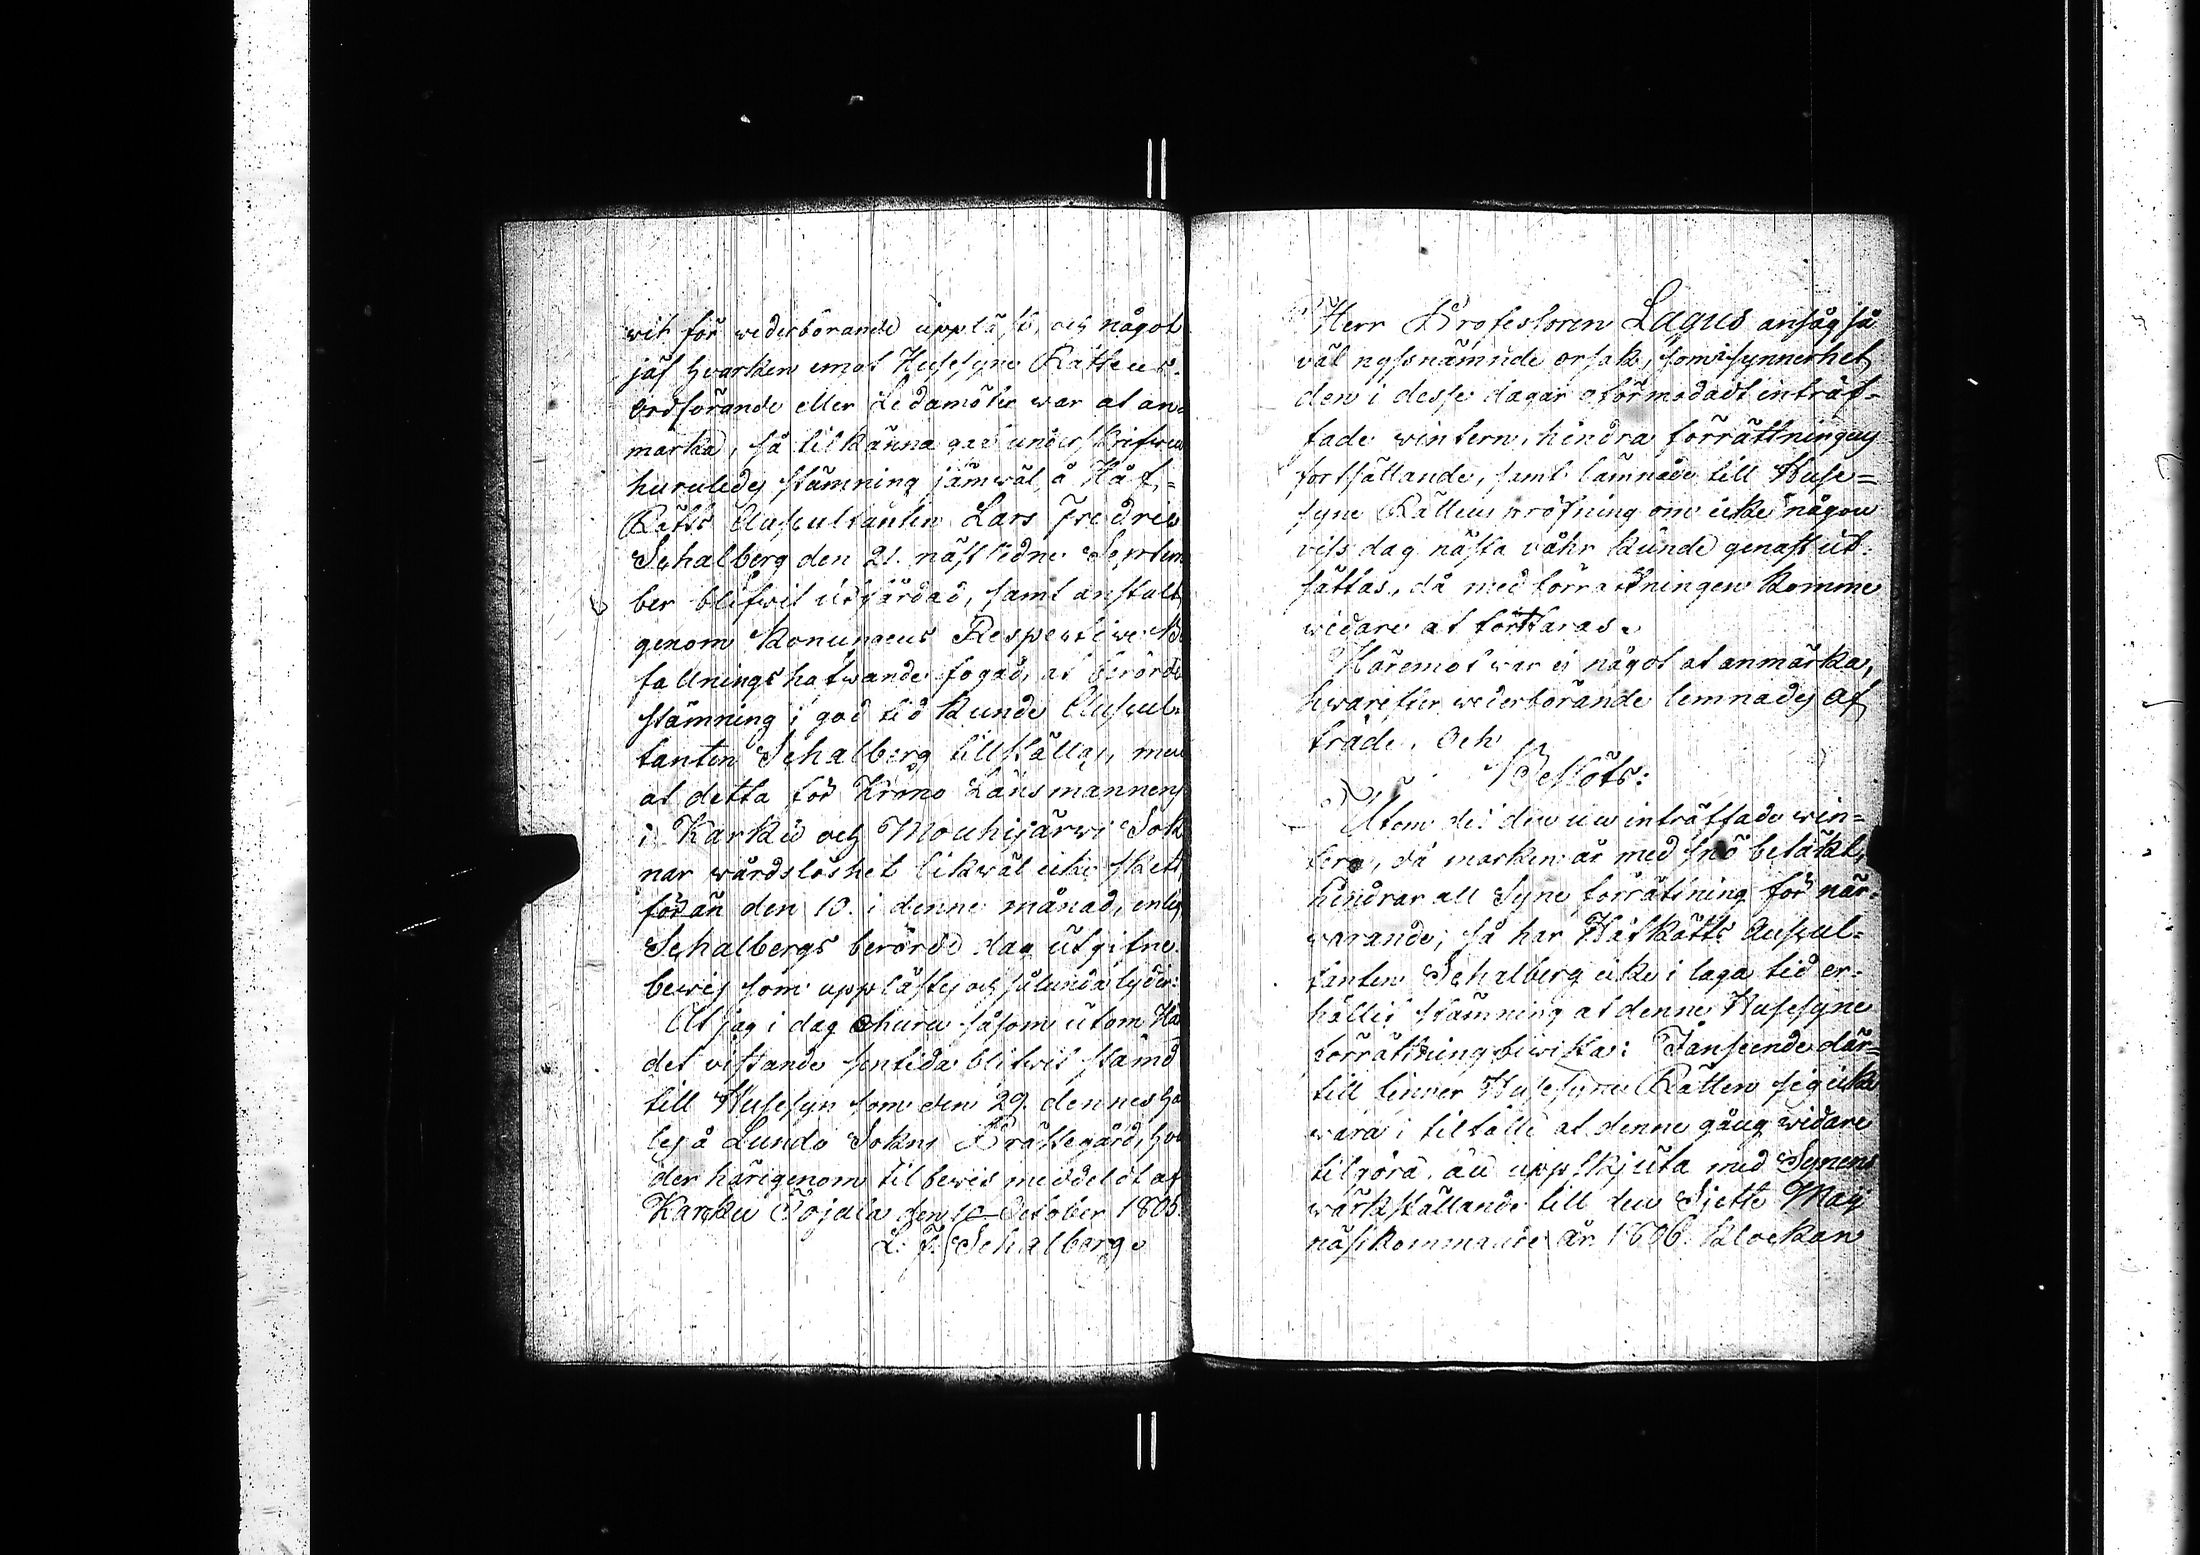 wit för wederbörande uppläst, och något
jäf hwarken emot Husesyns Rättens
ordförande eller Ledamöter war at an-
märka, så tilkänna gaf underskrifwen
huruledes stämning jämwäl å Håf-
Rätts Auscultanten Lars Fredric
Schalberg den 21. nästledne Septem
ber blifwit utfärdad, samt anstalt
genom Konungens Respective Be
fallningshafwande fogad, at berörde
stämning i god tid kunde Auscul-
tanten Schalberg tillställas, men
at detta för Krono Länsmannens
i Karku och Mouhijärwi Sok
nar wårdslöshet likwäl icke skett
förän den 10. i denne månad, enligt
Schalbergs berörde dag utgifne
bewis som upplästes och sålunda lyder:
At jag i dag ehuru såsom utom Hä
det vistande sentida blifwit stämd
till Husesyn som den 29. dennes hå
les å Lundo Sokns Prästegård, hwar
der härigenom til bewis meddelat af
Karku Tojala den 10 October 1805.
L. F. Schalberg.
Herr Professoren Lagus ansåg så
väl nyssnämnde orsak, som i synnerhet
den i desse dagar oförmodadt inträf-
fade wintern, hindra förrättningens
fortsällande, samt lämnade till Huse-
syns Rättens pröfning om icke någon
viss dag nästa våhr kunde genast ut-
sättas, då med förrättningen komme
widare at förfaras.
Häremot war ej något at anmärka,
hwarefter wederbörande lemnades af
träde, och
Beslöts:
Utom det den nu inträffade win-
tern, då marken är med snö betäkt,
hindrar all Syne förrättning för när-
warande; så har Håfrätts Auscul-
tanten Schalberg icke i laga tid er-
hållit stämning at denne Husesyns
förrättning biwista: I anseende där-
till finner Husesyns Rätten sig icke
wara i tilfälle at denne gång widare
tilgöra, än uppskjuta med Synens
wärkställande till den Sjette Maij
nästkommande år 1806. klockan